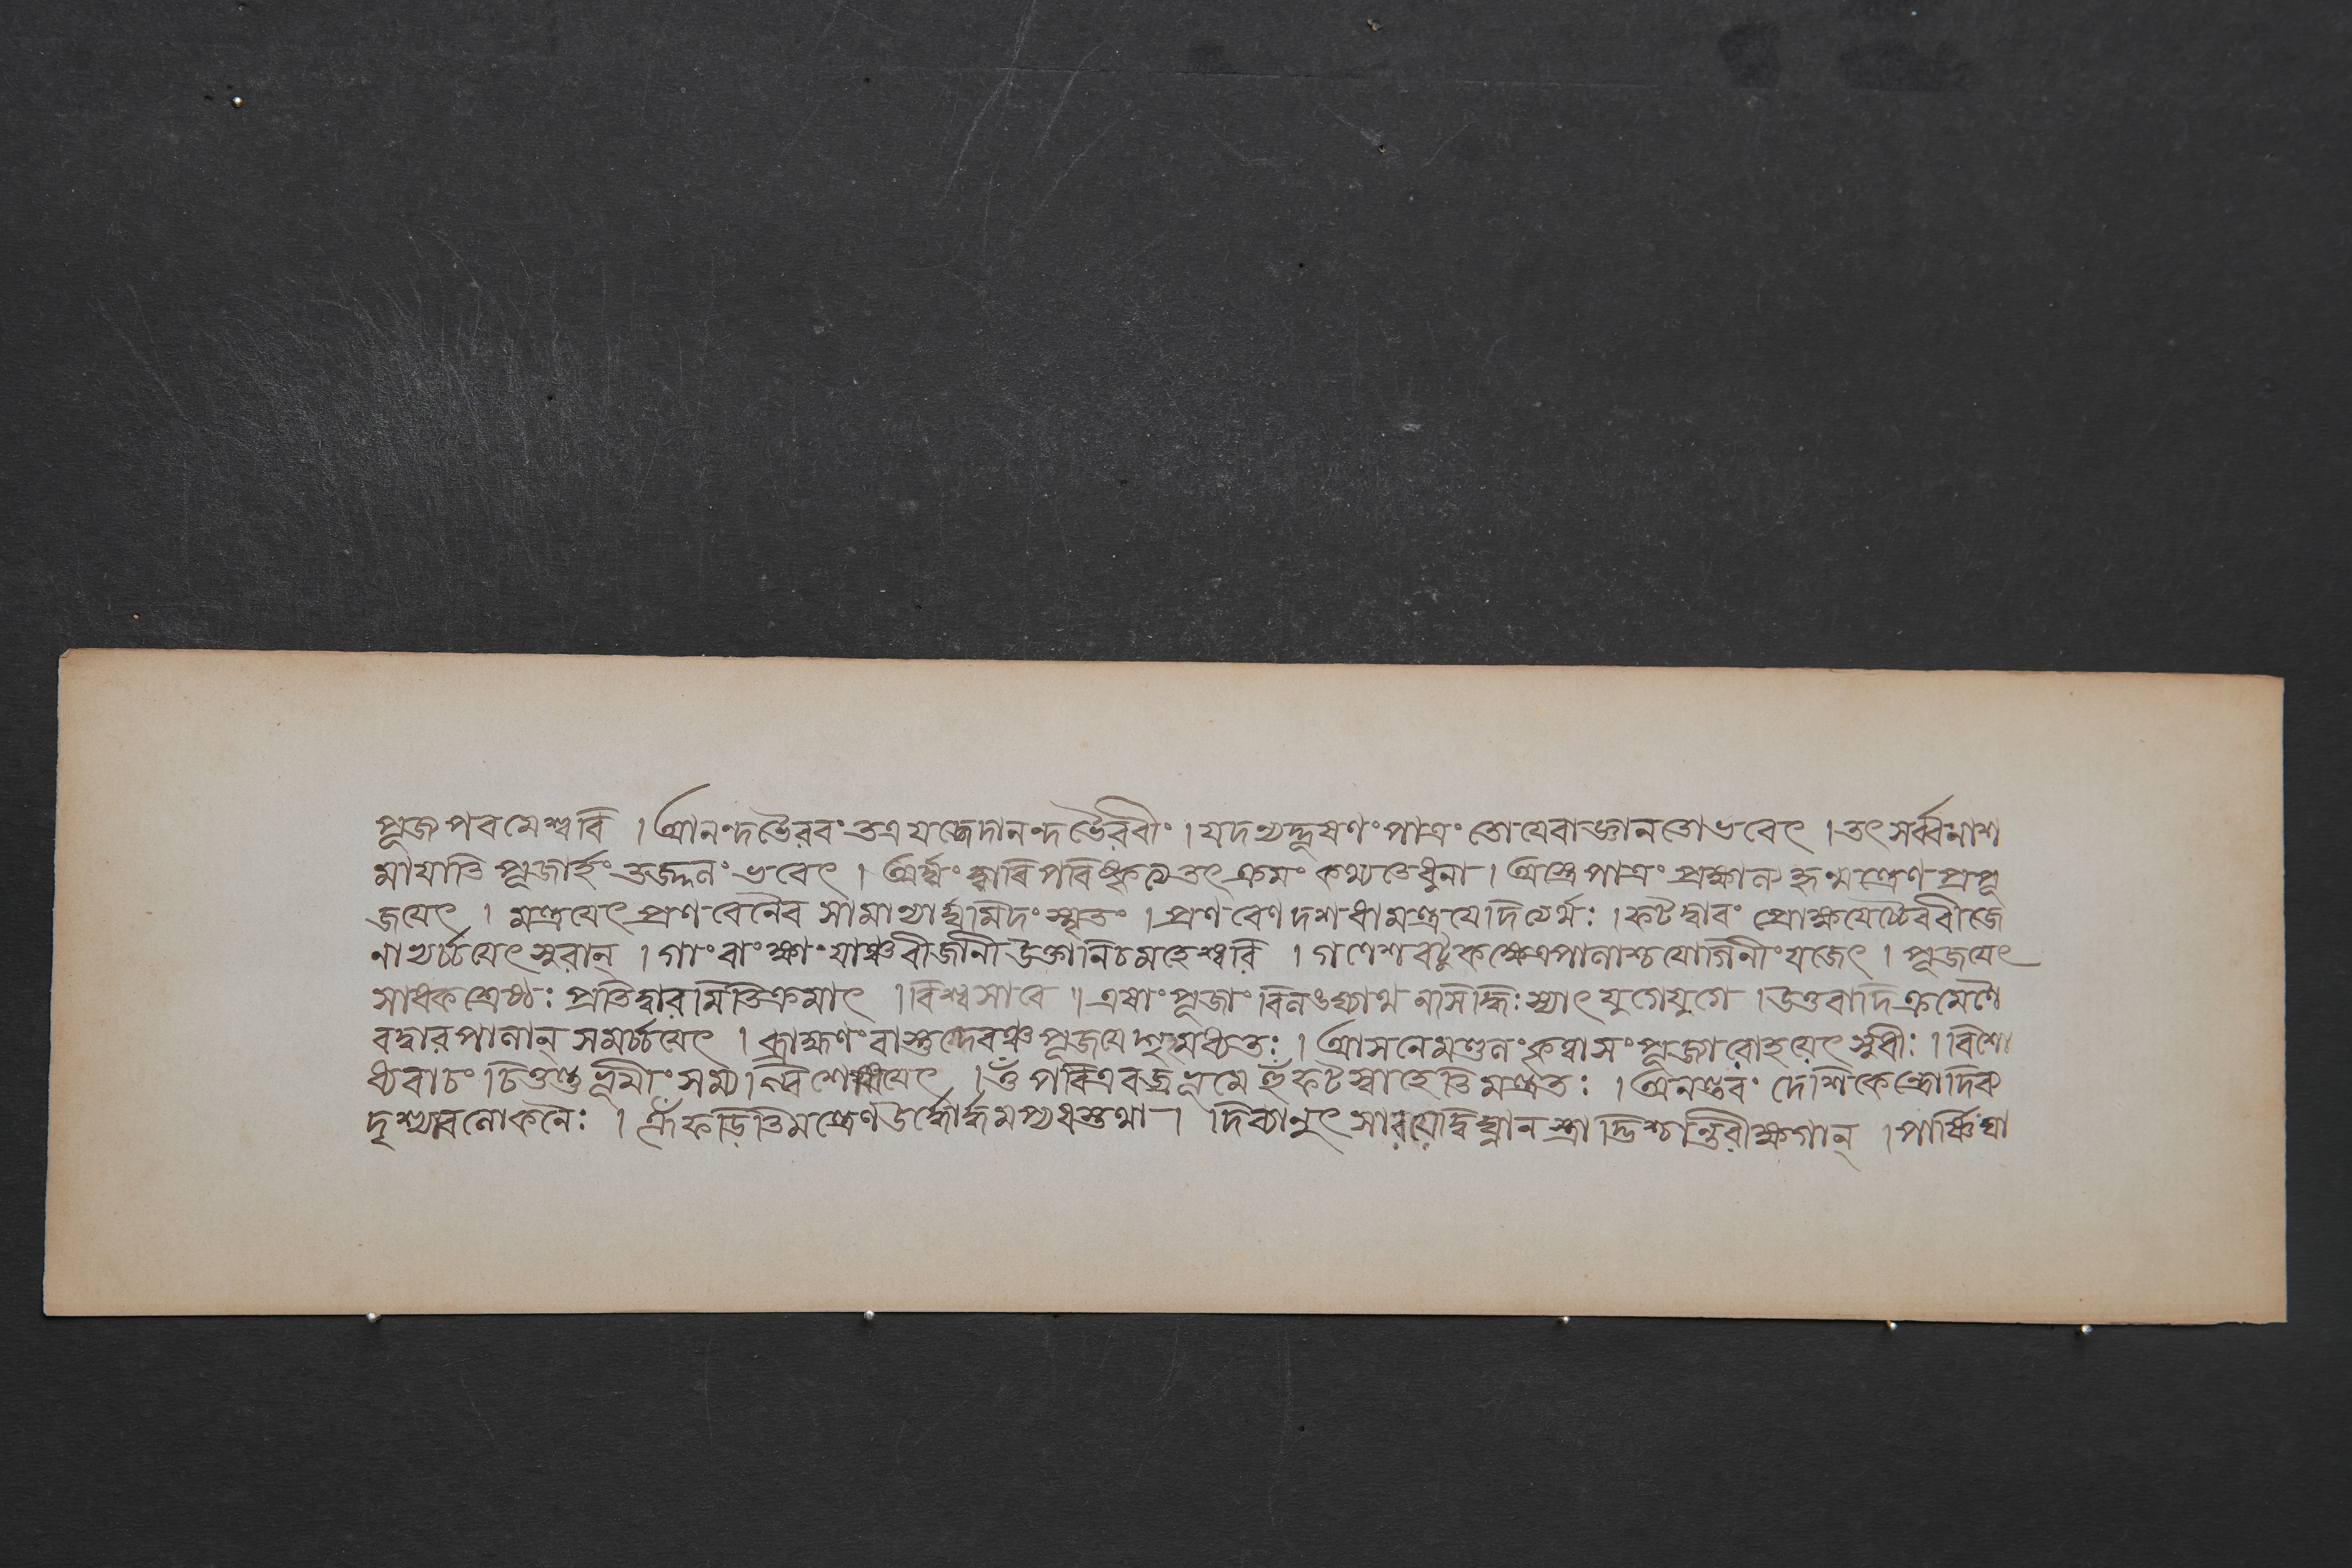 পূজপরমেশ্বরি । আনন্দভৈরবং তত্র যজেদানন্দভৈরবীং । যদন্যদ্দূষণং পাত্রং তোয়েবাজ্ঞানতোভবেৎ । তৎ সর্ব্বনাশ
মায়াতি পূজার্হং তজ্জনং ভবেৎ । অর্ঘ্যং দ্বারি পরিষ্কৃত্য তৎক্রমং কথ্যতেধুনা । অস্ত্রেপাত্রং প্রক্ষাল্য হৃন্মন্ত্রেণ প্রপূ
জয়েৎ । মন্ত্রয়েৎ প্রণবেনৈব সামান্যার্ঘ্যমিদং স্মৃতং । প্রণবেণ দশধামন্ত্রয়েদিত্যর্থঃ । ফট দ্বারং প্রোক্ষয়েচ্চৈববীজে
নাভ্যর্চ্চয়েৎ সুরান্ । গাং বাং ক্ষাং যাঞ্চবীজানী উক্তানিচমহেশ্বরি । গণেশবটুকক্ষেত্রপালাশ্চযোগিনীং যজেৎ । পূজয়েৎ
সাধকশ্রেষ্ঠঃ প্রতিদ্বারমিতিক্রমাৎ । বিশ্বসারে ॥ এষাং পূজাং বিনঙদ্যাথ নসিদ্ধিঃ স্যাৎ যুগেযুগে । উত্তরাদিক্রমেণৈ
বদ্বারপালান্ সমর্চ্চয়েৎ । ব্রাহ্মণং বাস্তুদেবঞ্চপূজয়ে গৃহমধ্যতঃ । আসনেমণ্ডলং কৃত্বাসং পূজ্যারোহয়েৎ সুধীঃ । বিশো
ধ্যবাচং চিত্তন্তুভূমীং সম্যগ্বিশোধয়েৎ । ওঁ পবিত্রবজ্রভূমে হুঁ ফট স্বাহেতিমন্ত্রতঃ । অনন্তরং দেশিকেন্দ্রোদিব
দৃশ্যাবলোকনৈঃ । ঐঁ ফড়িতিমন্ত্রেণ উর্দ্ধোর্দ্ধমপ্যধস্তথা । দিব্যানুৎ সারয়েদ্বিঘ্নানস্ত্রাদ্ভিশ্চান্তরীক্ষগান্ । পার্ষ্ণিঘা